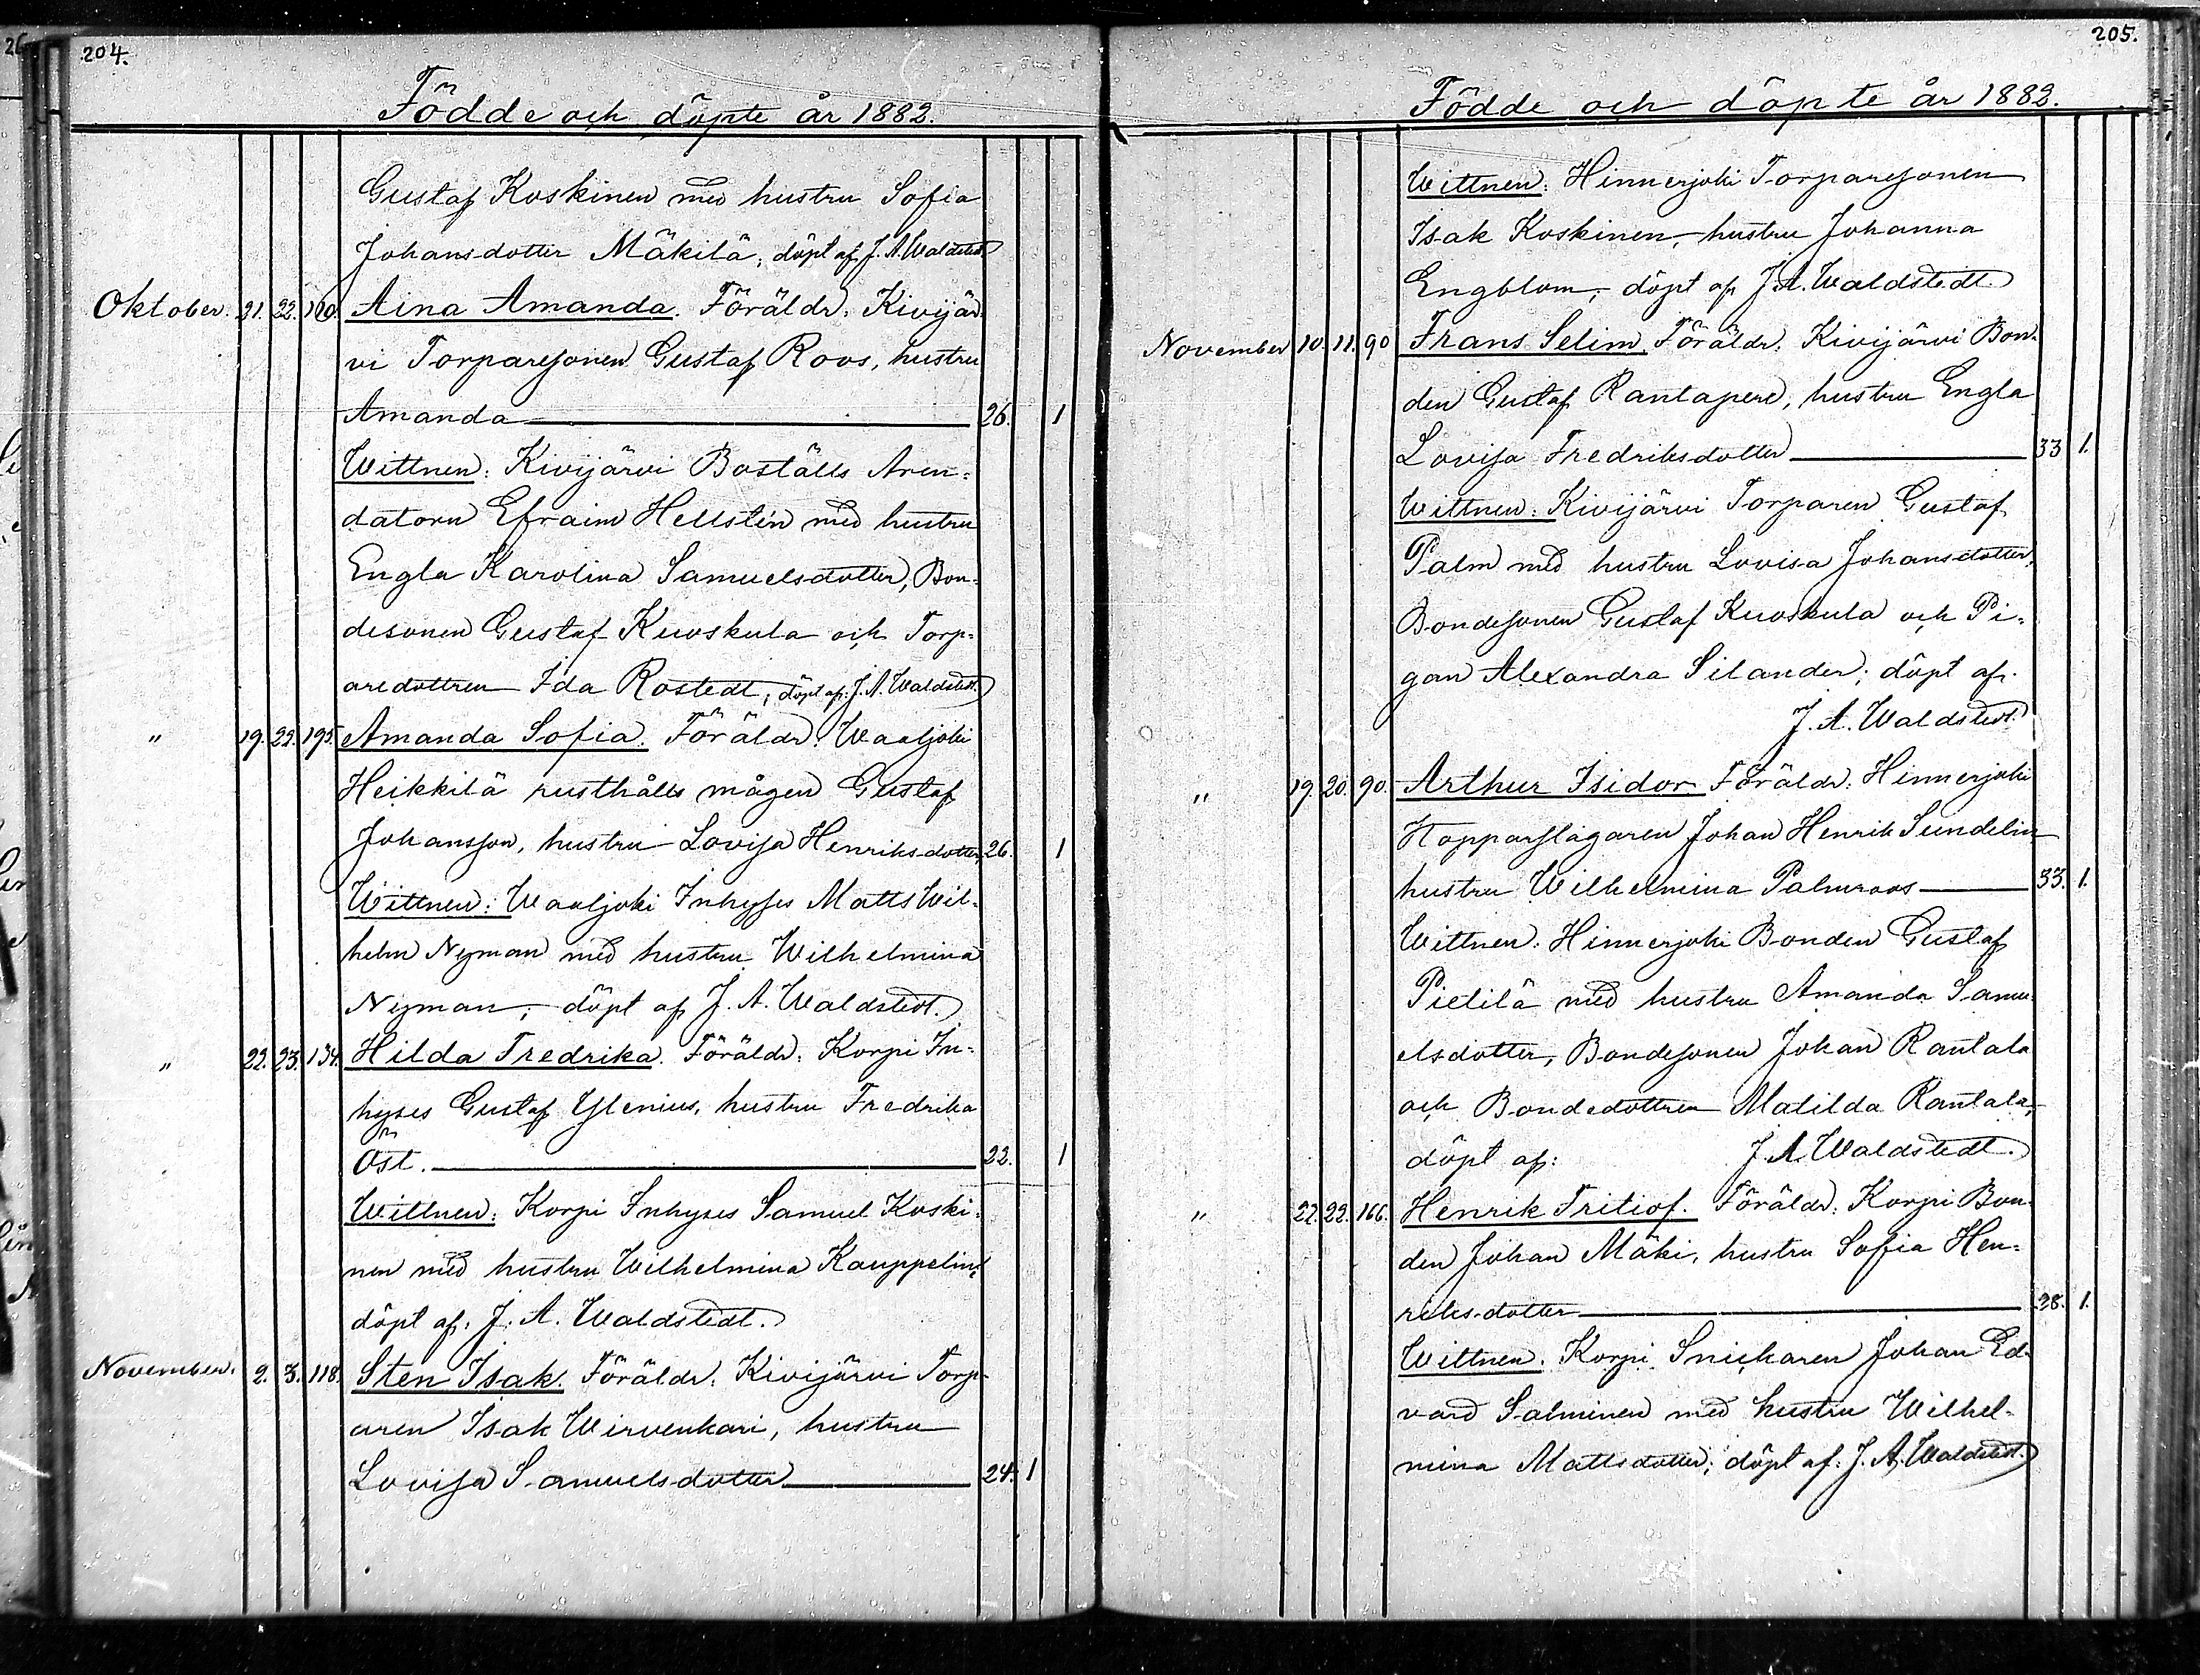 204.
Födde och döpte år 1882.
Gustaf Koskinen med hustru Sofia
Johansdotter Mäkilä, döpt af J. A. Waldstedt.
Oktober. 21. 22. 160. Aina Amanda. Föräldr. Kivijär-
vi Torparesonen Gustaf Roos, hustru
Amanda 26. 1
Wittnen: Kivijärvi Boställs Aren-
datorn Efraim Hellstén med hustru
Engla Karolina Samuelsdotter, Bon-
desonen Gustaf Kuoskula och Torp-
aredottren Ida Rostedt; döpt af: J. A. Waldstedt.
" 19. 22. 195. Amanda Sofia. Föräldr. Waaljoki
Heikkilä rusthålls mågen Gustaf
Johansson, hustru Lovisa Henriksdotter 26. 1
Wittnen: Waaljoki Inhyses Matts Wil-
helm Nyman med hustru Wilhelmina
Nyman; döpt af J. A. Waldstedt.
" 22. 23. 134. Hilda Fredrika. Föräldr. Korpi In-
hyses Gustaf Ylenius, hustru Fredrika
Öst. 22. 1
Wittnen: Korpi Inhyses Samuel Koski-
nen med hustru Wilhelmina Kauppelin;
döpt af: J. A. Waldstedt.
November. 2. 3. 118. Sten Isak. Föräldr. Kivijärvi Torp-
aren Isak Wirvenkari, hustru
Lovisa Samuelsdotter 24. 1
205.
Födde och döpte år 1882.
Wittnen: Hinnerjoki Torparesonen
Isak Koskinen, hustru Johanna
Engblom; döpt af J. A. Waldstedt.
November 10. 11. 90 Frans Selim. Föräldr. Kivijärvi Bon-
den Gustaf Rantapere, hustru Engla
Lovisa Fredriksdotter 33 1.
Wittnen: Kivijärvi Torparen Gustaf
Palm med hustru Lovisa Johansdotter,
Bondesonen Gustaf Kuoskula och Pi-
gan Alexandra Silander; döpt af.
J. A. Waldstedt.
" 19. 20. 90. Arthur Isidor Föräldr. Hinnerjoki
Kopparslagaren Johan Henrik Sundelin
hustru Wilhelmina Palmroos 33. 1.
Wittnen. Hinnerjoki Bonden Gustaf
Pietilä med hustru Amanda Samu-
elsdotter, Bondesonen Johan Rantala
och Bondedottren Matilda Rantala;
döpt af: J. A. Waldstedt.
" 22. 22. 166. Henrik Fritiof. Föräldr. Korpi Bon-
den Johan Mäki, hustru Sofia Hen-
riksdotter 28. 1.
Wittnen. Korpi Snickaren Johan Ed-
vard Salminen med hustru Wilhel-
mina Mattsdotter; döpt af: J. A. Waldstedt.